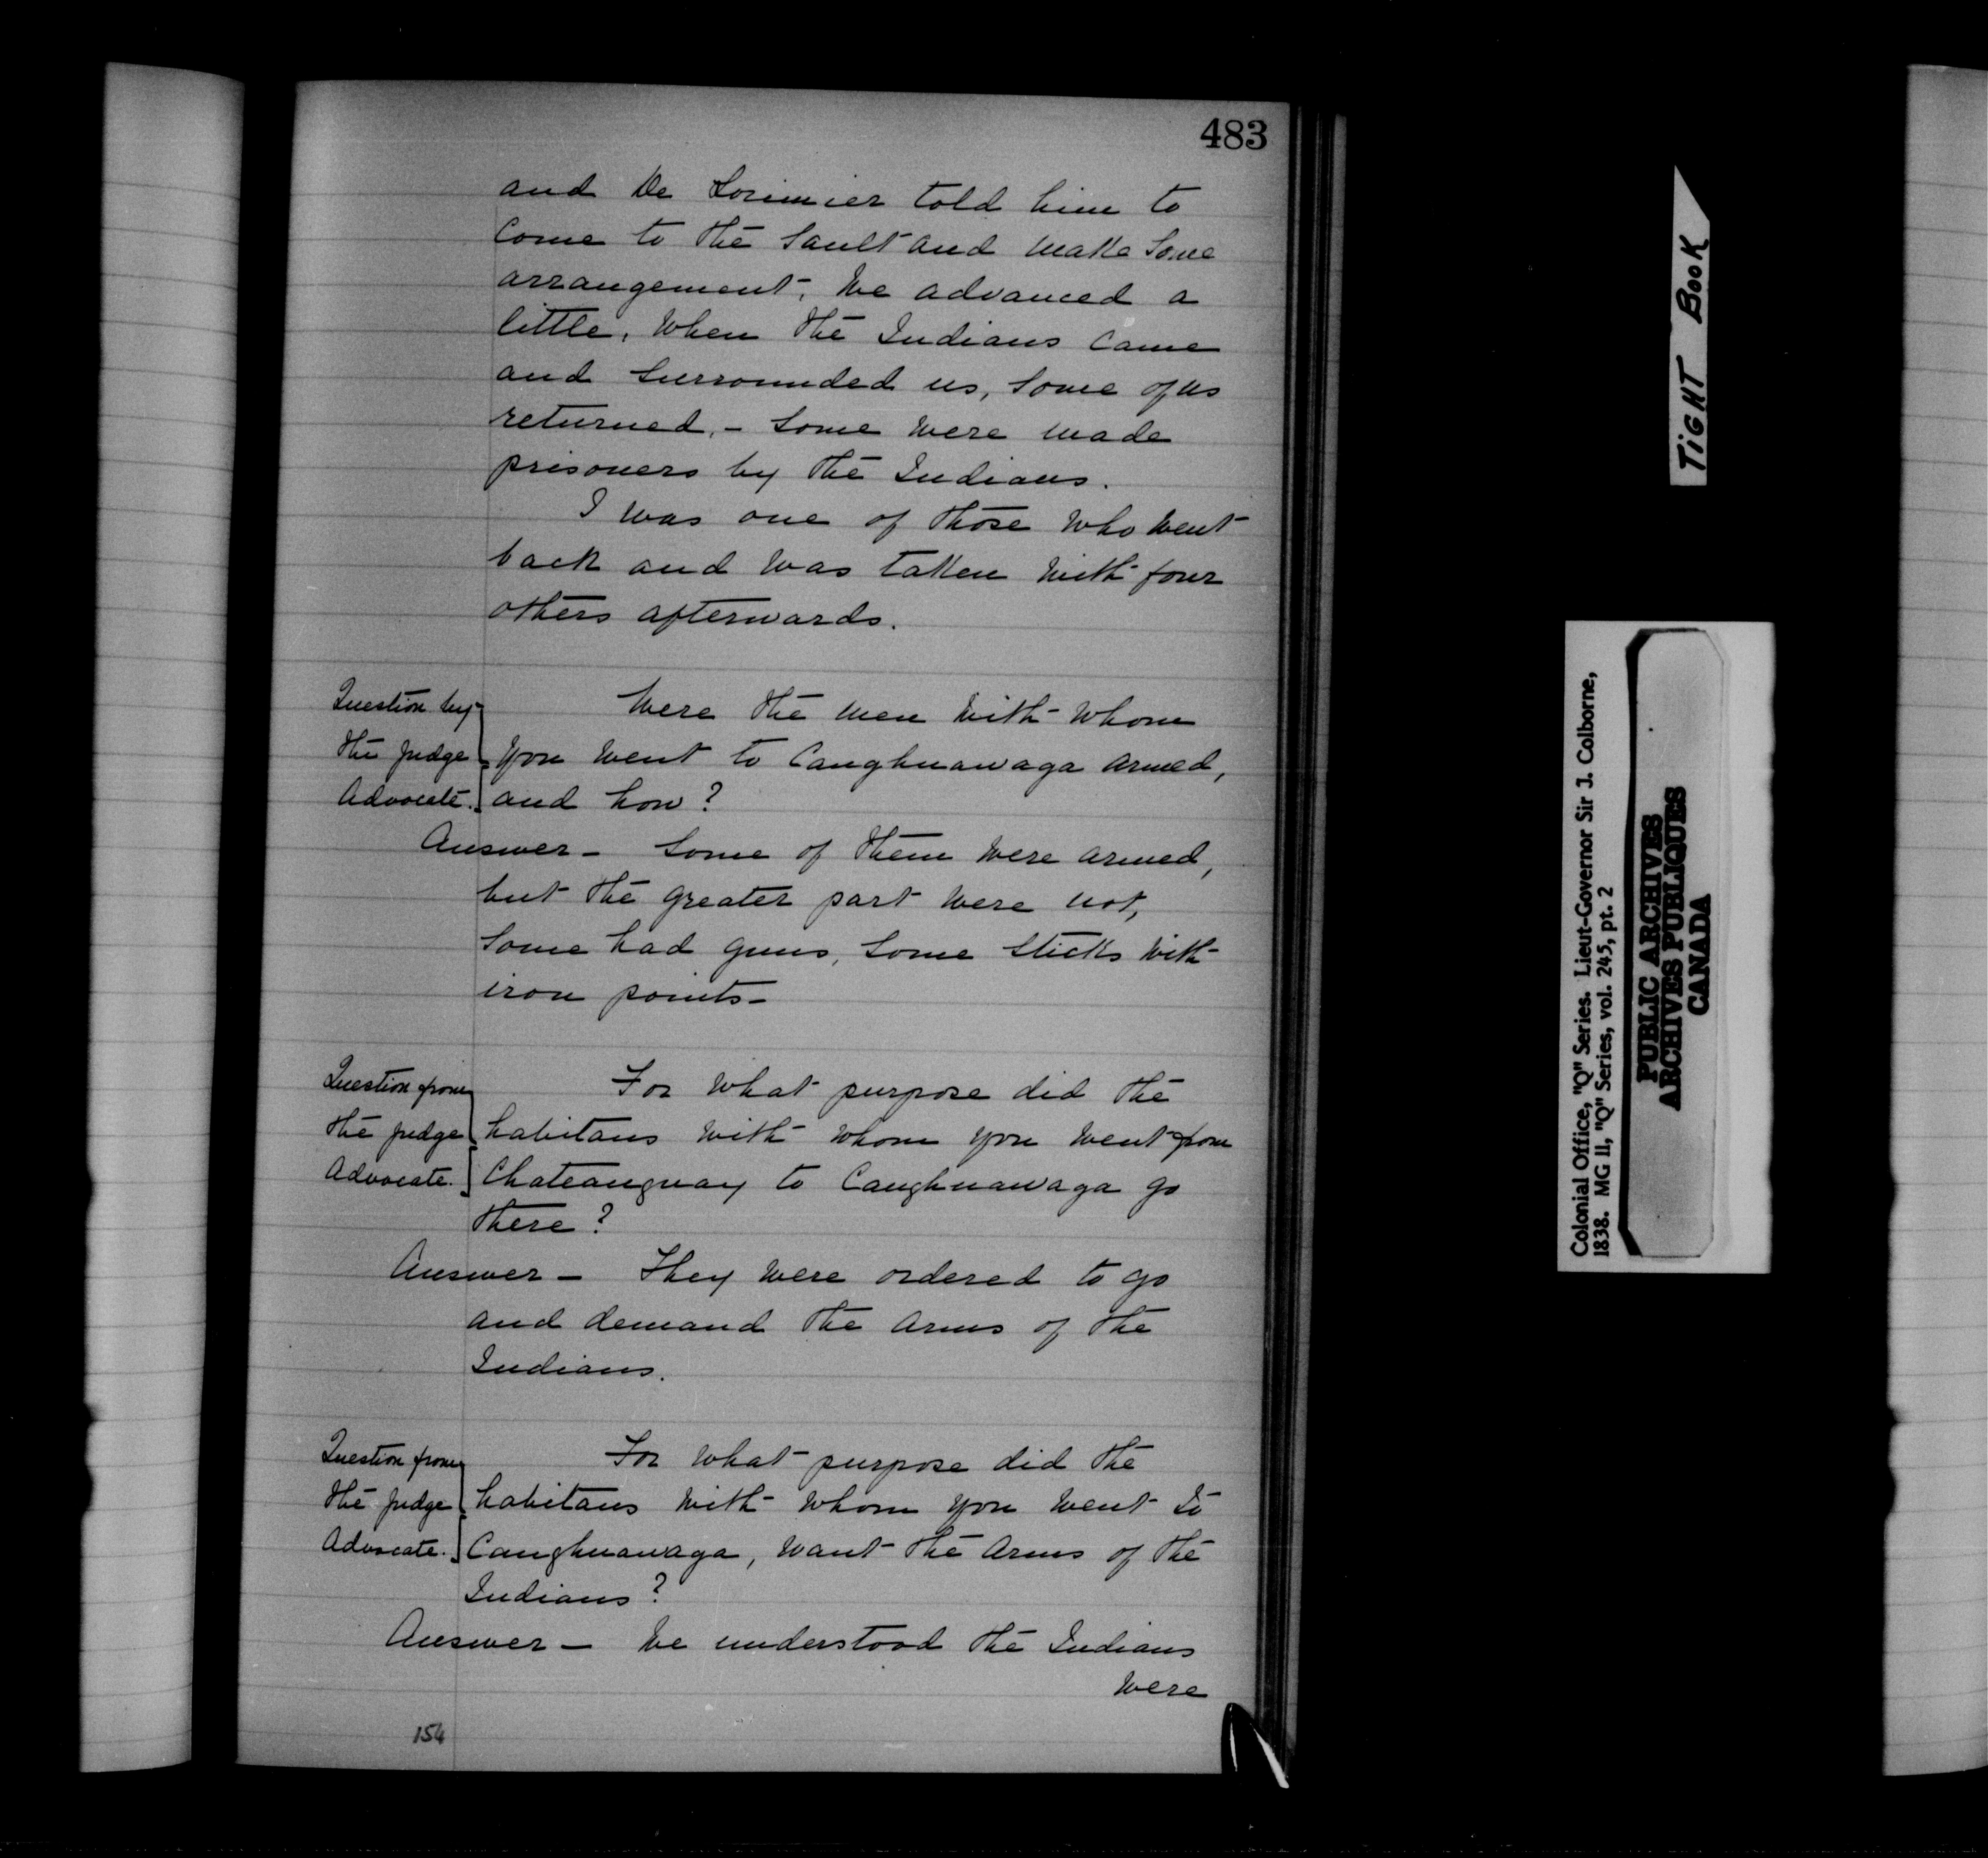 483
and De Lorimier told him to
Come to the Sault and make Some
arrangement. We advanced a
little, When the Indians Came
and Surrounded us, Some of us
returned, - Some were made
prisoners by the Indians.
I was one of those who went
back and was taken with four
others afterwards.
Question by
the judge
Advocate.
Were the men with whom
you went to Caughnawaga armed,
and how?
Answer - Some of them were armed,
but the greater part were not,
Some had guns, Some Sticks with
iron points -
Question from
the judge
Advocate.
For what purpose did the
habitans with whom you went from
Chateauguay to Caughnawaga go
there?
Answer - They were ordered to go
and demand the Arms of the
Indians.
Question from
the judge
Advocate.
For what purpose did the
habitans with whom you went to
Caughnawaga, want the Arms of the
Indians?
Answer - We understood the Indians
were
154
TIGHT BOOK
Colonial Office, "Q" Series. Lieut-Governor Sir J. Colborne,
1838. MG 11, "Q" Series, vol. 245, pt. 2
PUBLIC ARCHIVES
ARCHIVES PUBLIQUES
CANADA